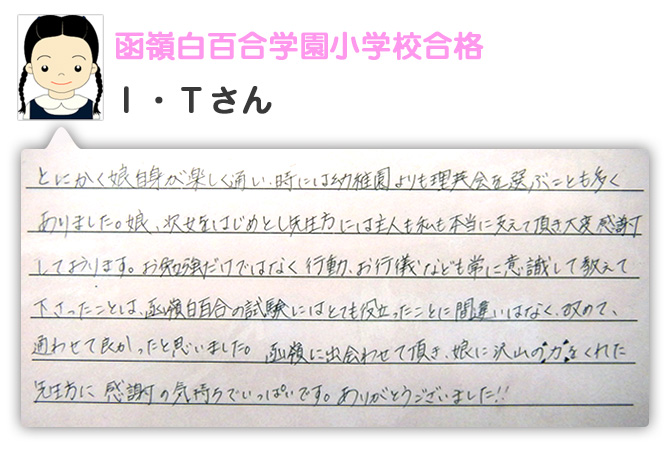 函嶺白百合学園小学校合格
I・Tさん
とにかく娘自身が楽しく通い、時には幼稚園よりも理英会を選ぶことも多く
ありました。娘、次女をはじめとし先生方には主人も私も本当に支えて頂き大変感謝
しております。お勉強だけではなく行動、お行儀なども常に意識して教えて
下さったことは、函嶺白百合の試験にはとても役立ったことに間違いはなく、改めて、
通わせて良かったと思いました。函嶺に出会わせて頂き、娘に沢山の"力"をくれた
先生方に感謝の気持ちでいっぱいです。ありがとうございました!!